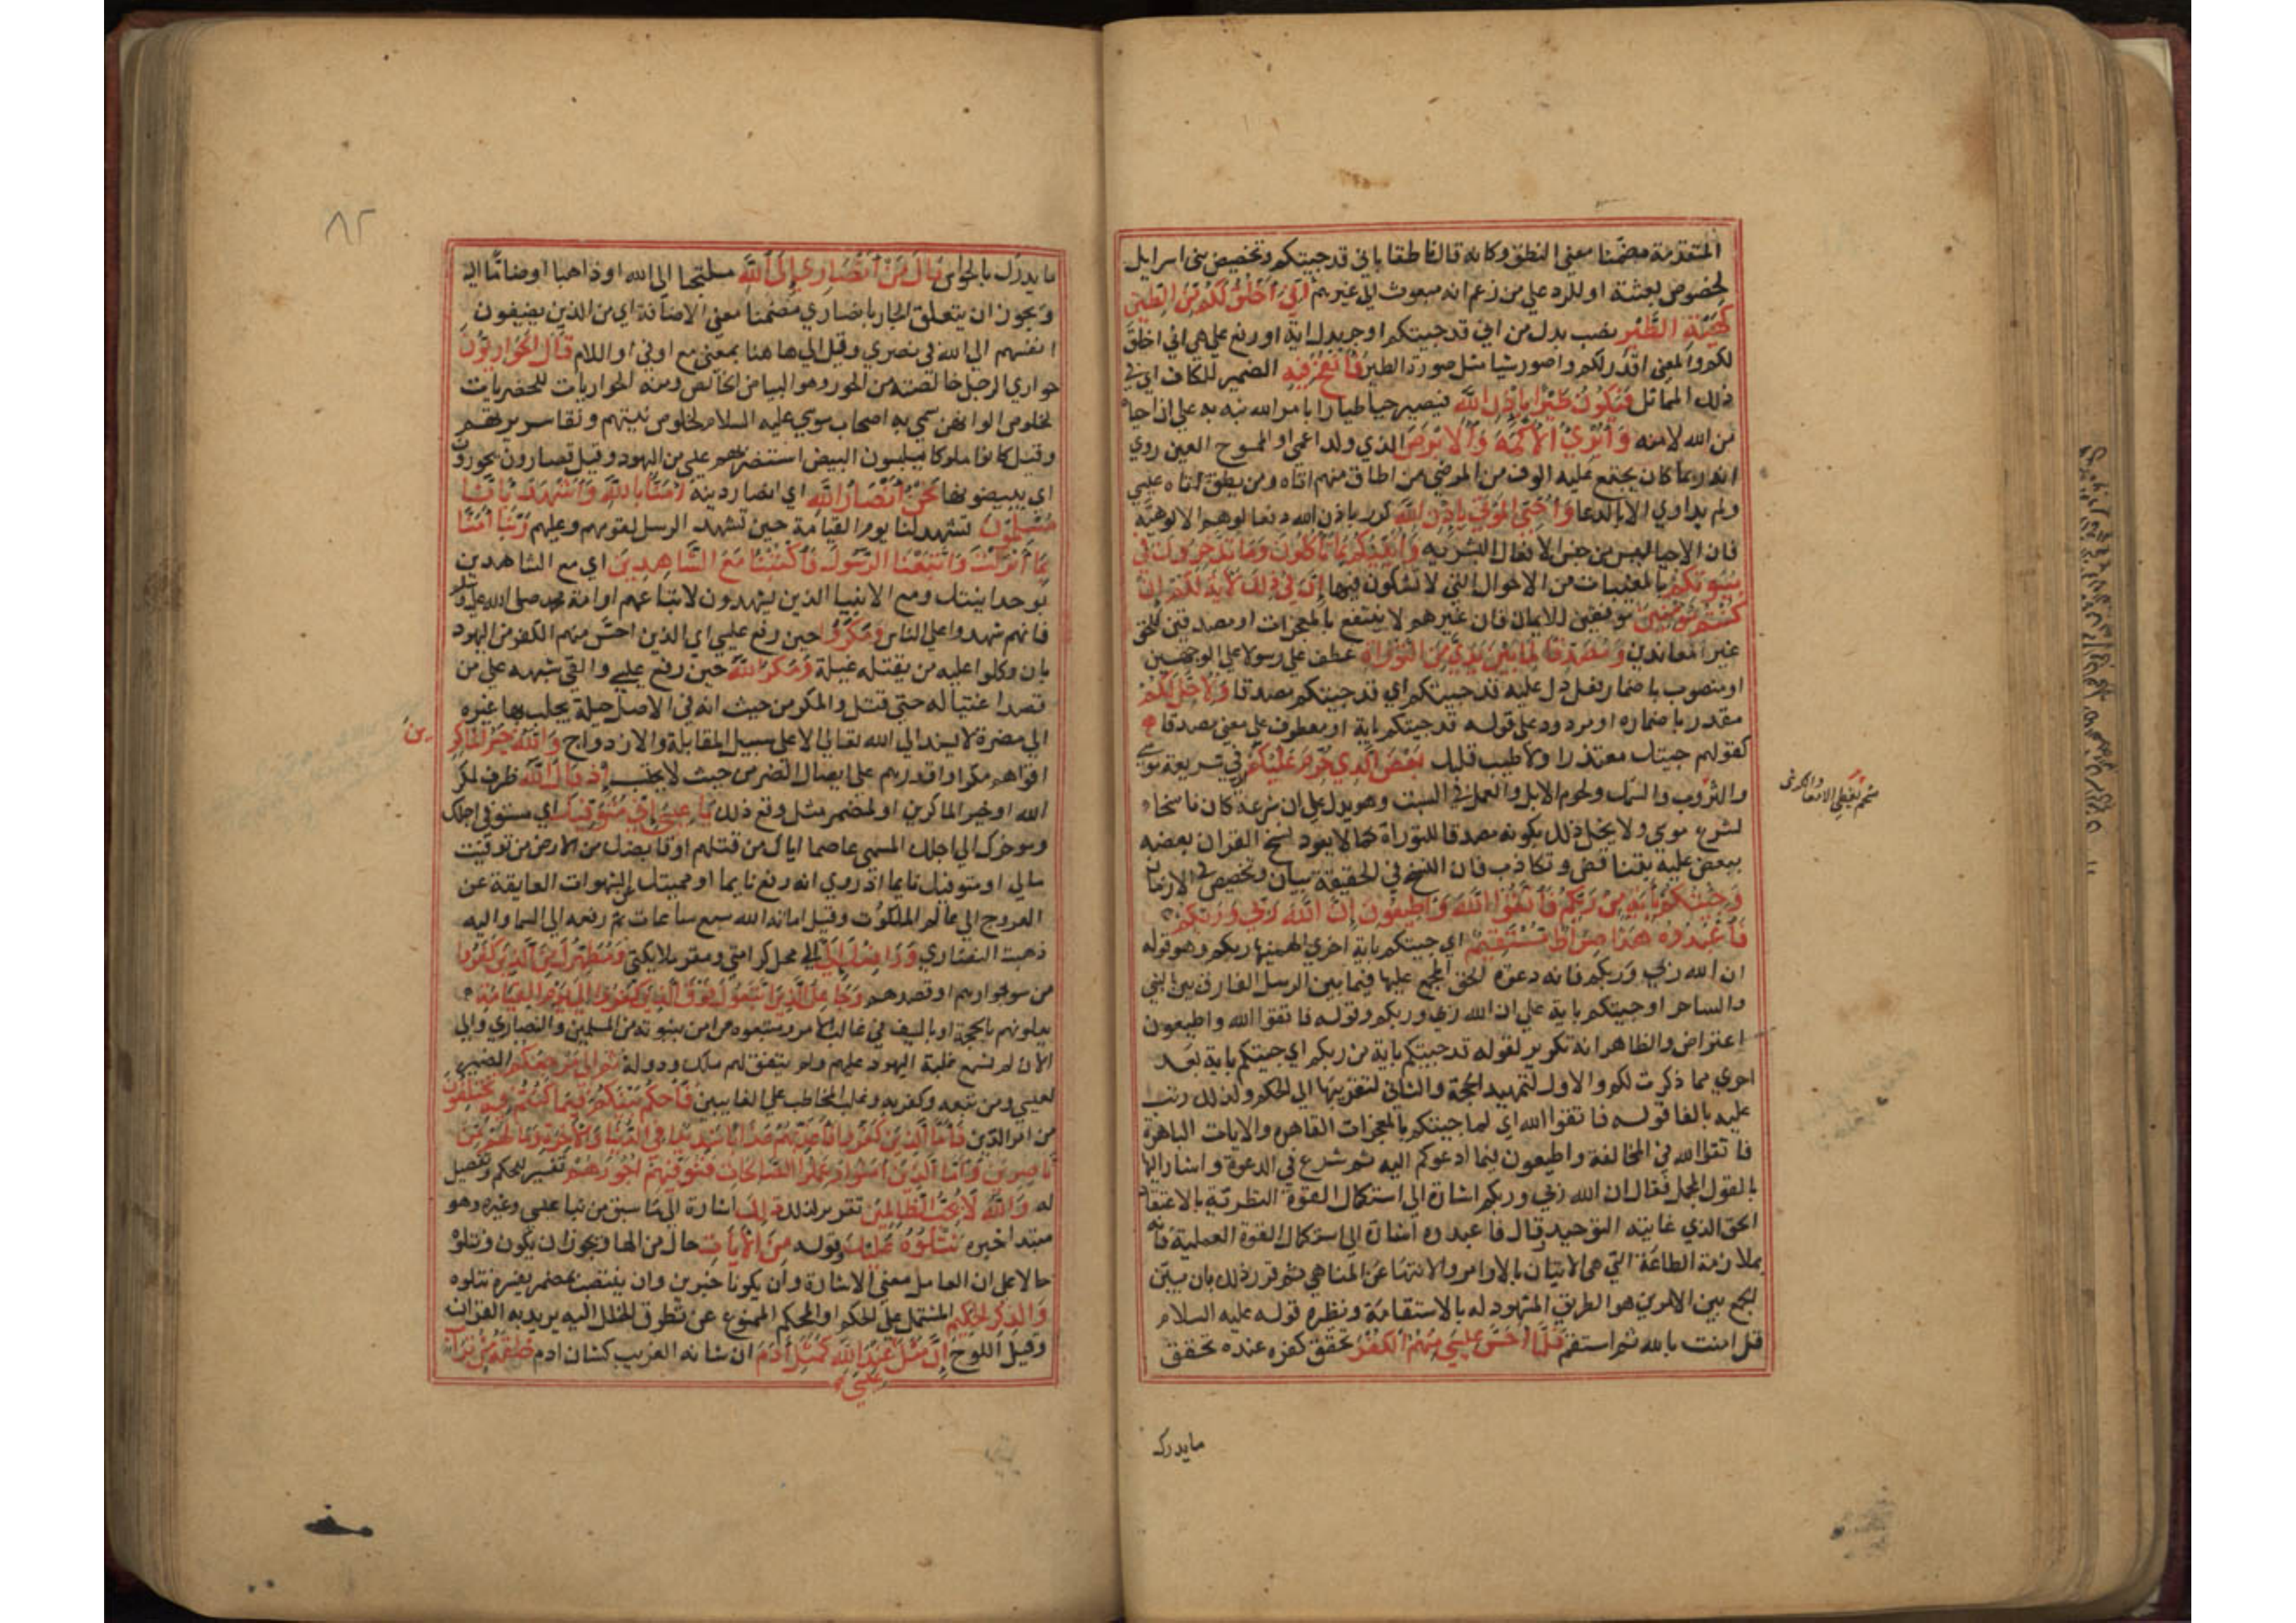 المتقدمة مضمنا معنى النطق وكانه قال ناطقا باني قد جيتكم وتخصيص بني اسرايل
لخصوص بعثته او للرد على من زعم انه مبعوث الى غيرهم أَنِّي أَخْلُقُ لَكُمْ مِنَ الطِّينِ
كَهَيْئَةِ الطَّيْرِ نصب بدل من اني قد جيتكم او جر بدل اية او رفع على هي اني اخلق
لكم والمعنى اقدر لكم واصور شيا مثل صورة الطير فَأَنْفُخُ فِيهِ الضمير للكاف اي في
ذلك المماثل فَيَكُونُ طَيْرًا بِإِذْنِ اللَّهِ فيصير حيا طيارا بامر الله نبه به على ان احياه
من الله لا منه وَأُبْرِئُ الْأَكْمَهَ وَالْأَبْرَصَ الذي ولد اعمى او الممسوح العين روي
انه ربما كان يجتمع عليه الوف من المرضي من اطاق منهم اتاه ومن لم يطق اتاه عيسي
ولم يداوي الا بالدعا وَأُحْيِي الْمَوْتَى بِإِذْنِ اللَّهِ كرر باذن الله دفعا لوهم الالوهية
فان الاحيا ليس من جنس الافعال البشريه وَأُنَبِّئُكُمْ بِمَا تَأْكُلُونَ وَمَا تَدَّخِرُونَ فِي
بُيُوتِكُمْ بالمغيبات من الاحوال التي لا تشكون فيها إِنَّ فِي ذَلِكَ لَآيَةً لَكُمْ إِنْ
كُنْتُمْ مُؤْمِنِينَ موفقين للايمان فان غيرهم لا ينتفع بالمعجزات او مصدقين للحق
غير المعاندين وَمُصَدِّقًا لِمَا بَيْنَ يَدَيَّ مِنَ التَّوْرَاةِ عطف على رسولا على الوجهين
او منصوب باضمار فعل دل عليه قد جيتكم اي قد جيتكم مصدقا وَلِأُحِلَّ لَكُمْ
مقدر باضماره او مردود على قوله قد جيتكم باية او معطوف على معنى مصدقا
كقولهم جيتك معتذرا ولاطيب قلبك بَعْضَ الَّذِي حُرِّمَ عَلَيْكُمْ في شريعة موسي
والثروب والسمك ولحوم الابل والعمل في السبت وهو يدل على ان شرعه كان ناسخا
لشرع موسي ولا يخل ذلك بكونه مصدقا للتوراة كما لا يعود نسخ القران بعضه
ببعض عليه بتناقض وتكاذب فان النسخ في الحقيقة بيان وتخصيص في الازمان
وَجِئْتُكُمْ بِآيَةٍ مِنْ رَبِّكُمْ فَاتَّقُوا اللَّهَ وَأَطِيعُونِ إِنَّ اللَّهَ رَبِّي وَرَبُّكُمْ
فَاعْبُدُوهُ هَذَا صِرَاطٌ مُسْتَقِيمٌ اي جيتكم باية اخري الهمنيها ربكم وهو قوله
ان الله ربي وربكم فانه دعوة الحق المجمع عليها فيما بين الرسل الفارق بين النبي
والساحر او جيتكم باية على ان الله ربي وربكم وقوله فاتقوا الله واطيعون
اعتراض والظاهر انه تكرير لقوله قد جيتكم باية من ربكم اي جيتكم باية بعد
اخري مما ذكرت لكم والاول لتمهيد الحجة والثاني لتقريبها الى الحكم ولذلك رتب
عليه بالفا قوله فاتقوا الله اي لما جيتكم بالمعجزات القاهره والايات الباهرة
فاتقوا الله في المخالفة واطيعون فيما ادعوكم اليه ثم شرع في الدعوة واشار اليها
بالقول المجمل فقال ان الله ربي وربكم اشارة الى استكمال القوة النظرية بالاعتقاد
الحق الذي غايته التوحيد وقال فاعبدوه اشارة الى استكمال القوة العملية فانه
بملازمة الطاعة التي هي الاتيان بالاوامر والانتها عن المناهي ثم قرر ذلك بان بين
الجمع بين الامرين هو الطريق المشهود له بالاستقامة ونظيره قوله عليه السلام
قل امنت بالله ثم استقم فَلَمَّا أَحَسَّ عِيسَى مِنْهُمُ الْكُفْرَ تحقق كفره عنده تحقق
مايدرك
ما يدرك بالحواس قَالَ مَنْ أَنْصَارِي إِلَى اللَّهِ ملتجيا الى الله او ذاهبا او ضاما اليه
ويجوز ان يتعلق الجار بانصاري مضمنا معنى الاضافة اي من الذين يضيفون
انفسهم الى الله في نصري وقيل الى هاهنا بمعنى مع او في او اللام قَالَ الْحَوَارِيُّونَ
حواري الرجل خالصته من الحور وهو البياض الخالص ومنه الحواريات للحضريات
لخلوص الوانهن سمي به اصحاب عيسي عليه السلام لخلوص نيتهم ونقا سريرتهم
وقيل كانوا ملوكا يلبسون البيض استنصر بهم عيسي من اليهود وقيل قصارون يحورون
اي يبيضونها نَحْنُ أَنْصَارُ اللَّهِ اي انصار دينه آمَنَّا بِاللَّهِ وَاشْهَدْ بِأَنَّا
مُسْلِمُونَ لتشهد لنا يوم القيامة حين تشهد الرسل لقومهم وعليهم رَبَّنَا آمَنَّا
بِمَا أَنْزَلْتَ وَاتَّبَعْنَا الرَّسُولَ فَاكْتُبْنَا مَعَ الشَّاهِدِينَ اي مع الشاهدين
بوحدانيتك ومع الانبيا الذين يشهدون لاتباعهم او امة محمد صلى الله عليه وسلم
فانهم شهدوا على الناس وَمَكَرُوا حين رفع عيسي اي الذين احس منهم الكفر من اليهود
بان وكلوا عليه من يقتله غيلة وَمَكَرَ اللَّهُ حين رفع عيسي والقي شبهه على من
قصد اغتياله حتى قتل والمكر من حيث انه في الاصل حيلة يجلب بها غيره
الى مضرة لا يسند الى الله تعالى الا على سبيل المقابلة والازدواج وَاللَّهُ خَيْرُ الْمَاكِرِينَ
اقواهم مكرا واقدرهم على ايصال الضرر من حيث لا يحتسب إِذْ قَالَ اللَّهُ ظرف لمكر
الله او خير الماكرين او لمضمر مثل وقع ذلك يَا عِيسَى إِنِّي مُتَوَفِّيكَ اي مستوفي اجلك
وموخرك الى اجلك المسمى عاصما اياك من قتلهم او قابضك من الارض من توفيت
مالي او متوفيك نايما اذ روي انه رفع نايما او مميتك عن الشهوات العايقة عن
العروج الى عالم الملكوت وقيل اماته الله سبع ساعات ثم رفعه الى السما واليه
ذهبت النصاري وَرَافِعُكَ إِلَيَّ الى محل كرامتي ومقر ملايكتي وَمُطَهِّرُكَ مِنَ الَّذِينَ كَفَرُوا
من سو جوارهم او قصدهم وَجَاعِلُ الَّذِينَ اتَّبَعُوكَ فَوْقَ الَّذِينَ كَفَرُوا إِلَى يَوْمِ الْقِيَامَةِ
يعلونهم بالحجة او بالسيف في غالب الامر ومتبعوه من امن بنبوته من المسلمين والنصاري والى
الان لم تسمع غلبة اليهود عليهم ولم يتفق لهم ملك ودولة ثُمَّ إِلَيَّ مَرْجِعُكُمْ الضمير
لعيسي ومن تبعه وكفر به وغلب المخاطب على الغايبين فَأَحْكُمُ بَيْنَكُمْ فِيمَا كُنْتُمْ فِيهِ تَخْتَلِفُونَ
من امر الدين فَأَمَّا الَّذِينَ كَفَرُوا فَأُعَذِّبُهُمْ عَذَابًا شَدِيدًا فِي الدُّنْيَا وَالْآخِرَةِ وَمَا لَهُمْ مِنْ
نَاصِرِينَ وَأَمَّا الَّذِينَ آمَنُوا وَعَمِلُوا الصَّالِحَاتِ فَنُوَفِّيهِمْ أُجُورَهُمْ تفسير للحكم وتفصيل
له وَاللَّهُ لَا يُحِبُّ الظَّالِمِينَ تقرير لذلك ذَلِكَ اشارة الى ما سبق من نبا عيسي وغيره وهو
مبتدا خبره نَتْلُوهُ عَلَيْكَ وقوله مِنَ الْآيَاتِ حال من الها ويجوز ان يكون ونتلوه
حالا على ان العامل معنى الاشارة وان يكونا خبرين وان ينتصب بمضمر يفسره نتلوه
وَالذِّكْرِ الْحَكِيمِ المشتمل على الحكم او المحكم الممنوع عن تطرق الخلل اليه يريد به القران
وقيل اللوح إِنَّ مَثَلَ عِيسَى عِنْدَ اللَّهِ كَمَثَلِ آدَمَ ان شانه الغريب كشان ادم خَلَقَهُ مِنْ تُرَابٍ
٨٢